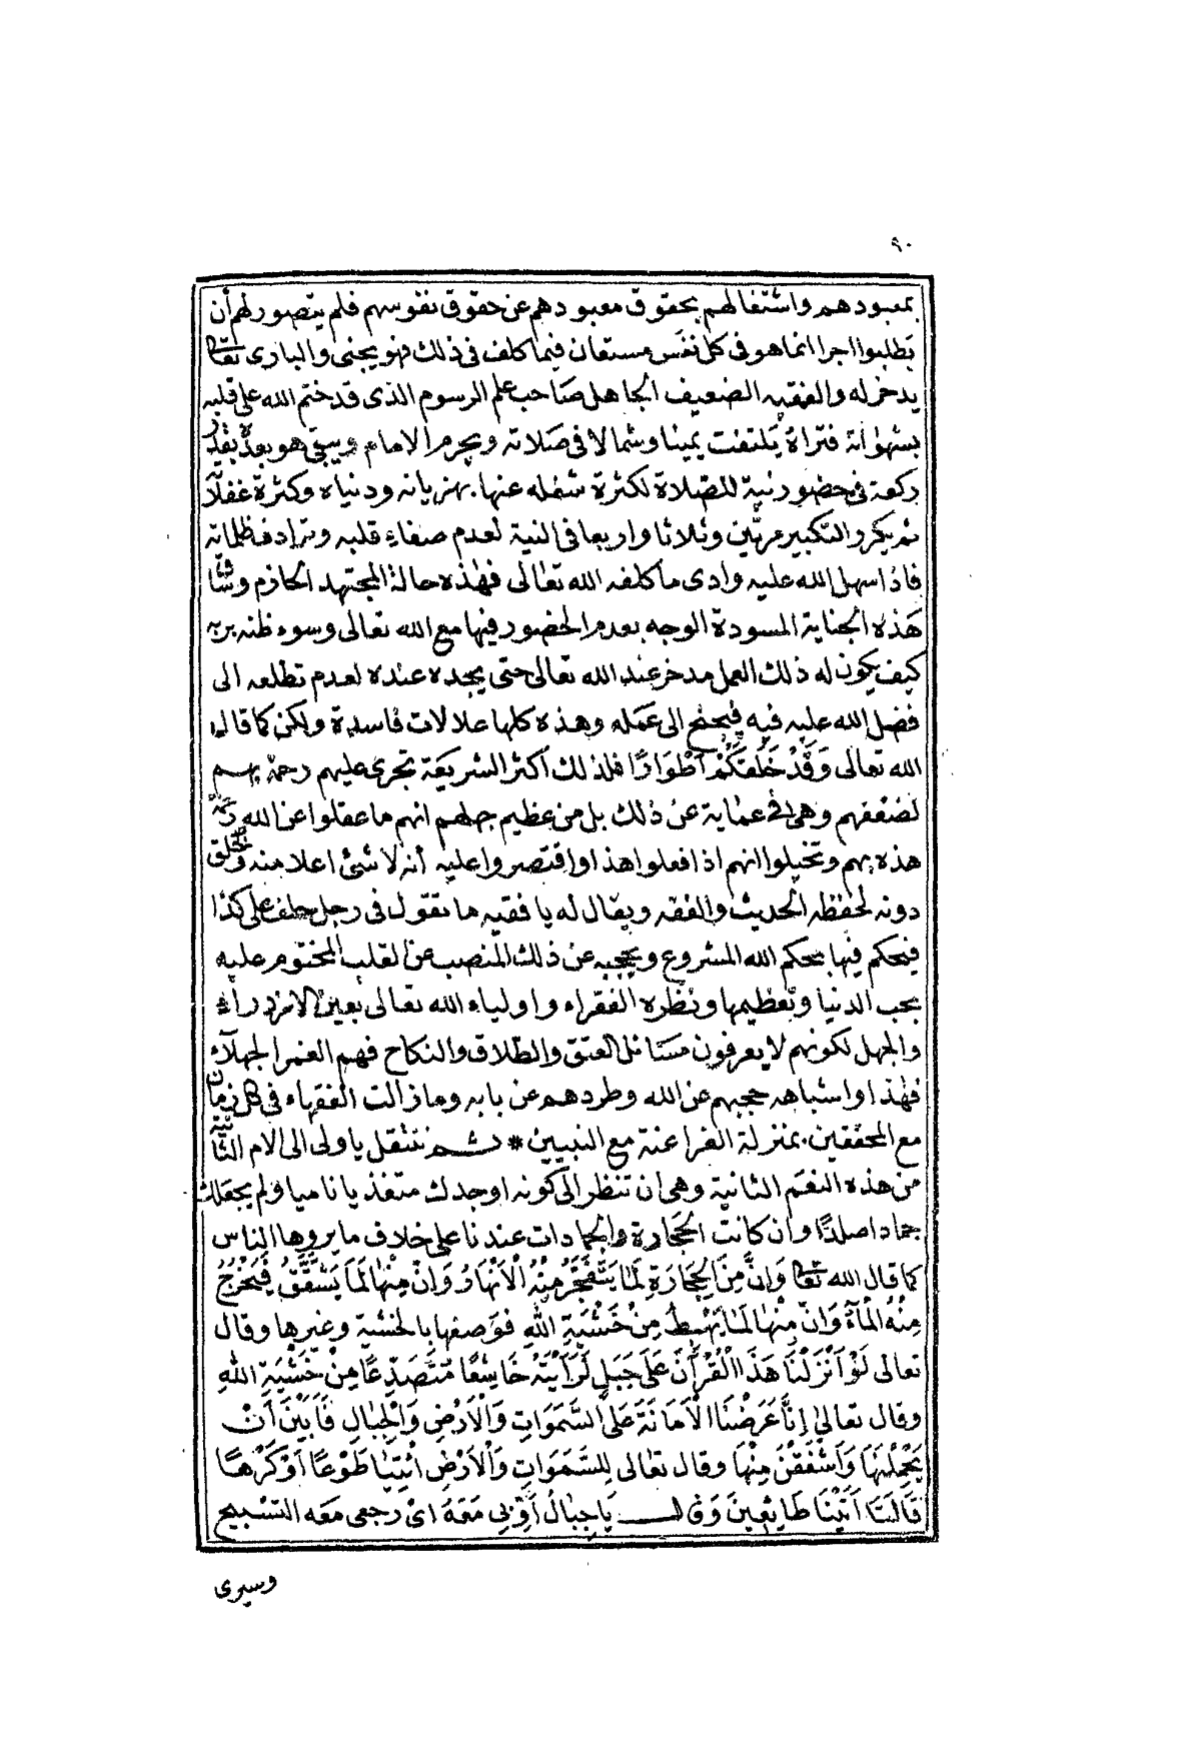 ٩٠
بمعبودهم واشتغالهم بحقوق معبودهم عن حقوق نفوسهم فلم يتصور لهم أن
يطلبوا اجرا انما هو فى كل نفس مستعان فيما كلف فى ذلك فهو يجنى والبارى تعا
يدخرله والفقيه الضعيف الجاهل صاحب علم الرسوم الذى قد ختم الله على قلبه
بشهواته فتراه يلتفت يمينا وشمالا فى صلاته ويحرم الامام ويبقى هو بعده بقدر
ركعة فى حضور نية للصلاة لكثرة شغله عنها بهذيانه ودنياه وكثرة غفلاته
ثم يكرر التكبير مرتين وثلاثا واربعا فى النية لعدم صفاء قلبه وترادف ظلماته
فاذا سهل الله عليه وادى ما كلفه الله تعالى فهذه حالة المجتهد الحازم
هذه الجناية المسودة الوجه بعدم الحضور فيها مع الله تعالى وسوء ظنه بربه
كيف يكون له ذلك العمل مدخر عند الله تعالى حتى يجده عنده لعدم تطلعه الى
فضل الله عليه فيه فيجنح الى عمله وهذه كلها علالات فاسدة ولكن كما قال
الله تعالى وَقَدْ خَلَقَكُمْ أَطْوَارًا فلذلك أكثر الشريعة تجرى عليهم رحمة بهم
لضعفهم وهى فى عماية عن ذلك بل من عظيم جهلهم انهم ما عقلوا عن الله
هذه بهم وتخيلوا انهم اذا فعلوا هذا واقتصروا عليه أنه لا شئ اعلا منه والخلق
دونه لحفظه الحديث والفقه ويقال له يا فقيه ما تقول فى رجل حلف على كذا
فيحكم فيها بحكم الله المشروع ويحجبه عن ذلك المنصب عن القلب المختوم عليه
بحب الدنيا وتعظيمها ونظره الفقراء واولياء الله تعالى بعين الازدراء
والجهل لكونهم لا يعرفون مسائل العتق والطلاق والنكاح فهم الغمر الجهلاء
فهذا واشباهه حجبهم عن الله وطردهم عن بابه وما زالت الفقهاء فى كل زمان
مع المحققين بمنزلة الفراعنة مع النبيين * ثم ننتقل يا ولى الى الام الثانية
من هذه النعم الثانية وهى ان تنظر الى كونه اوجدك متغذيا ناميا ولم يجعلك
جمادا صلدًا وان كانت الحجارة والجمادات عندنا على خلاف ما يروها الناس
كما قال الله تعا وَاِنَّ مِنَ الْحِجَارَةِ لَمَا يَتَفَجَّرُ مِنْهُ الْاَنْهَارُ وَاِنَّ مِنْهَا لَمَا يَشَّقَّقُ فَيَخْرُجُ
مِنْهُ الْمَآءُ وَاِنَّ مِنْهَا لَمَا يَهْبِطُ مِنْ خَشْيَةِ اللهِ فوصفها بالخشية وغيرها وقال
تعالى لَوْ اَنْزَلْنَا هَذَا الْقُرْآنَ عَلَى جَبَلٍ لَرَاَيْتَهُ خَاشِعًا مُتَصَدِّعًا مِنْ خَشْيَةِ اللهِ
وقال تعالى اِنَّا عَرَضْنَا الْاَمَانَةَ عَلَى السَّمَوَاتِ وَالْاَرْضِ وَالْجِبَالِ فَاَبَيْنَ اَنْ
يَحْمِلْنَهَا وَاَشْفَقْنَ مِنْهَا وقال تعالى لِلسَّمَوَاتِ وَالْاَرْضِ ائْتِيَا طَوْعًا اَوْ كَرْهًا
قَالَتَا اَتَيْنَا طَائِعِينَ وَقال يَاجِبَالُ أَوِّبِي مَعَهُ اىْ رجعى معه التسبيح
وسيرى